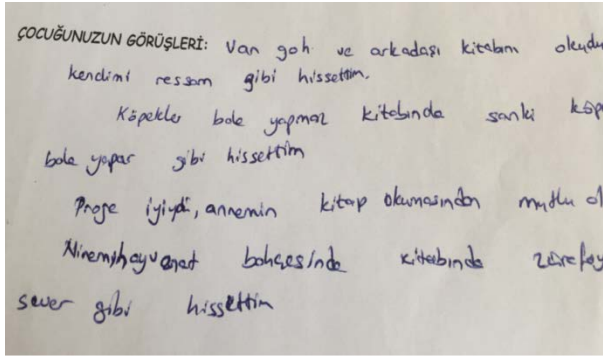 ÇOCUĞUNUZUN GÖRÜŞLERİ: Van goh ve arkadaşı kitabını okudu
kendimi ressam gibi hissettim.
Köpekler bale yapmaz kitabında sanki köp
bale yapar gibi hissettim
Proje iyiydi, annemin kitap okumasından mutlu ol
hayvanat bahçesinde kitabında zürafay
sever gibi hissettim